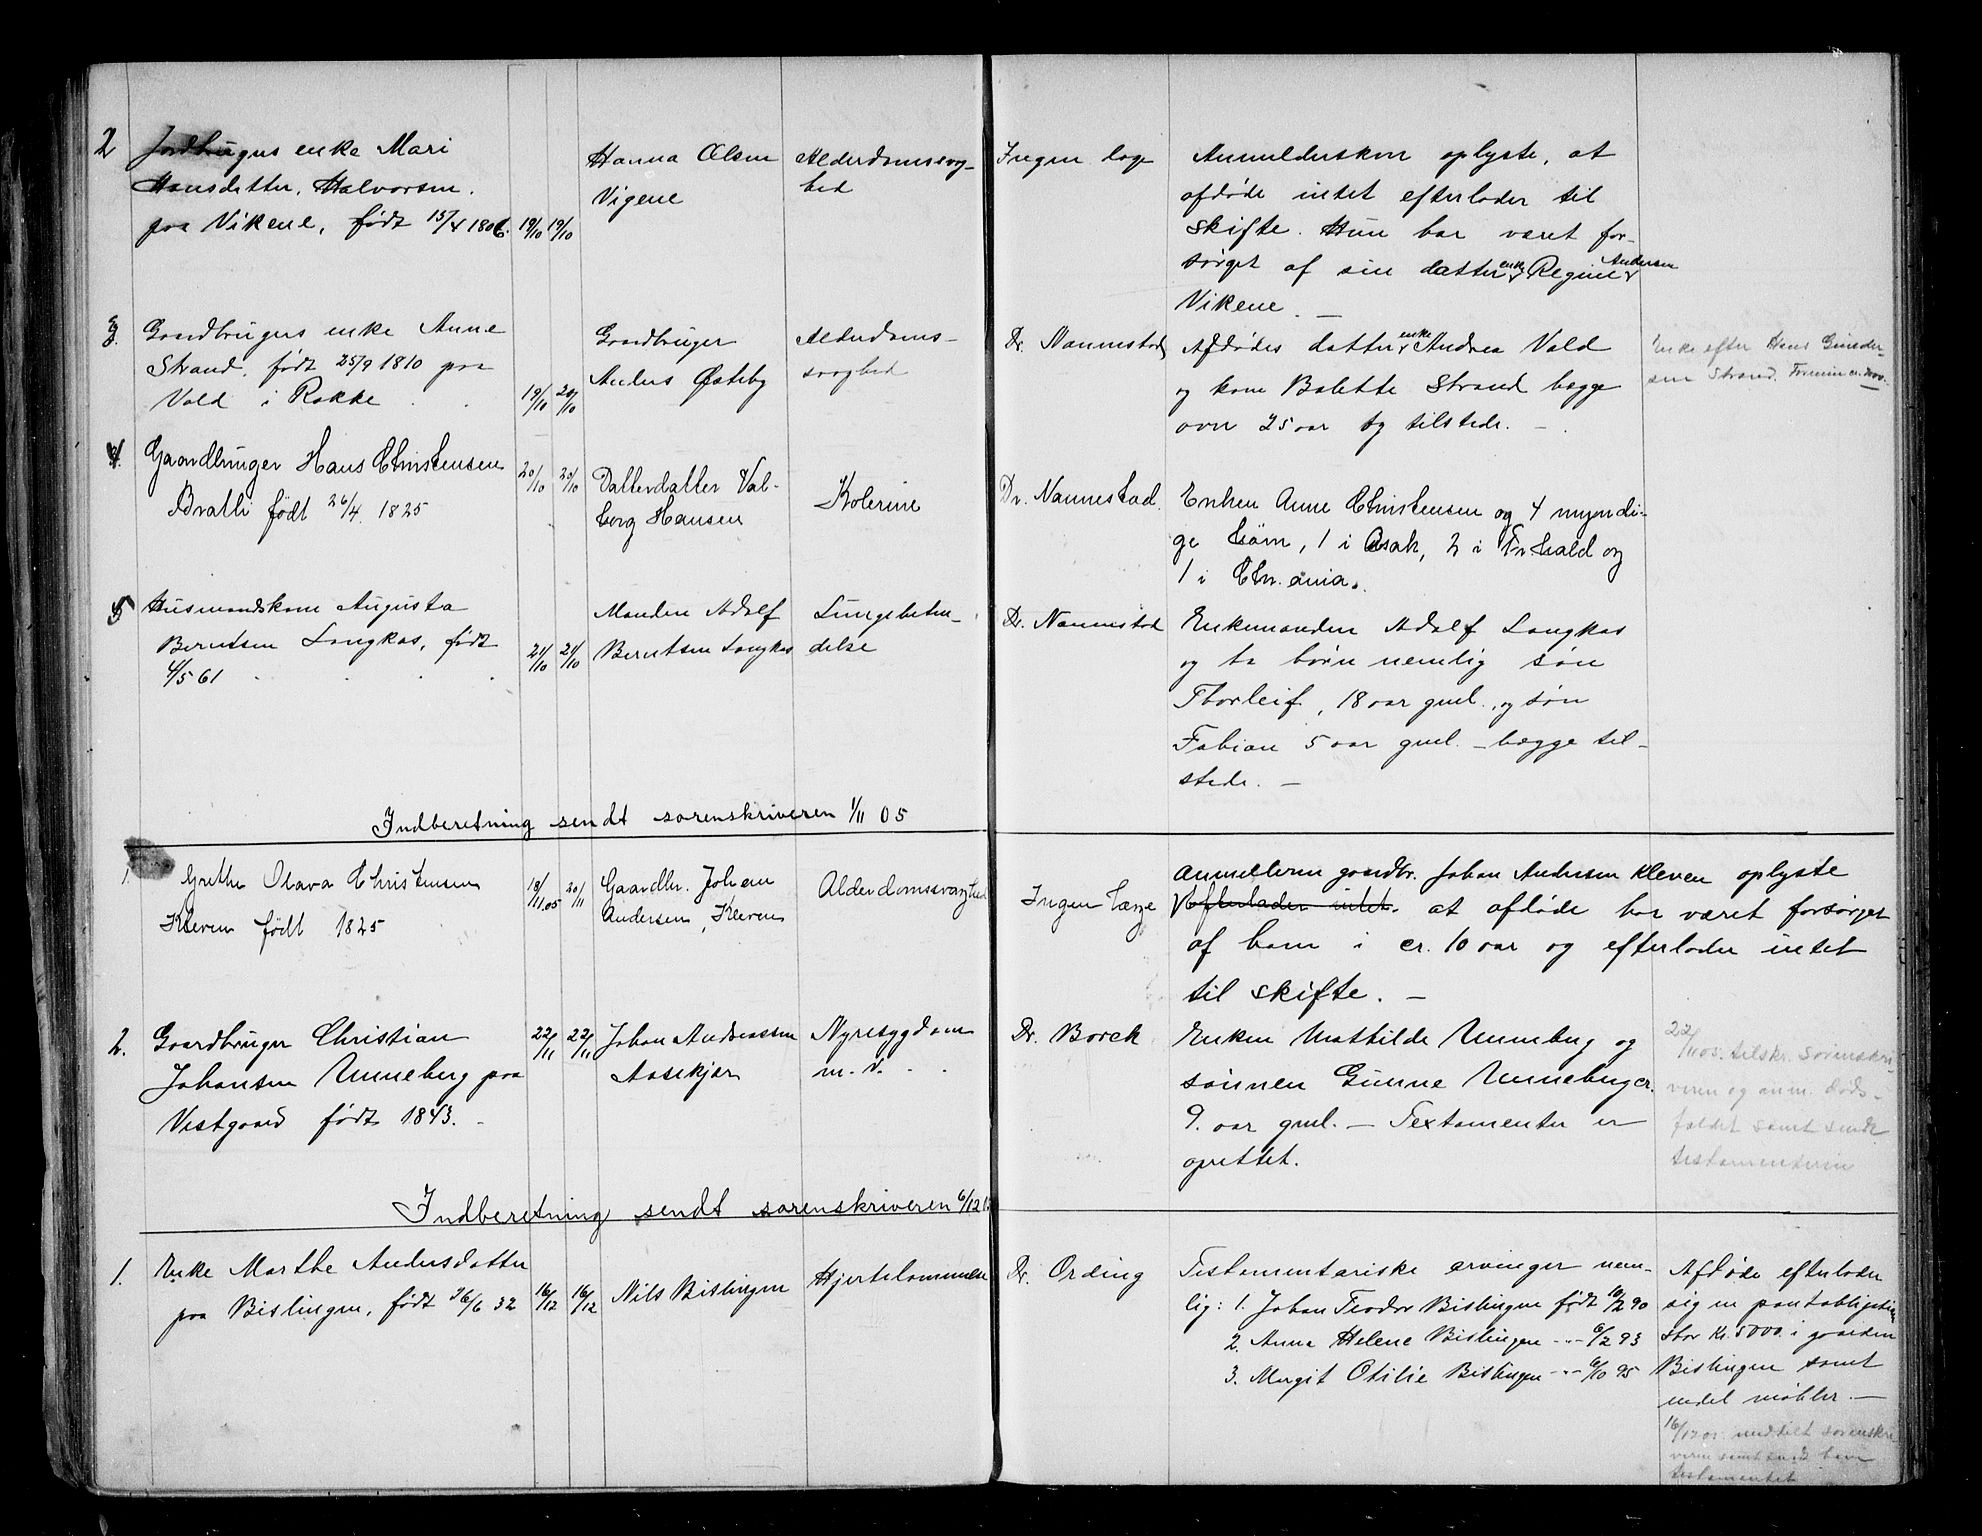 2 Jordbrugers enke Mari
Hansdatter, Halvorsen.
paa Vikene, født 15/4 1806. 19/10 19/10
Hanna Olsen
Vigene
Alderdomssvag-
hed
Ingen læge
Anmeldersken oplyste, at
afdøde intet efterlader til
skifte. Hun har været for-
sørget af sin datter enke Regine Andersen
Vikene. —
3. Gaardbrugers enke Anne
Strand, født 25/9 1810 paa
Vold i Rokke . . 19/10 20/10
Gaardbruger
Anders Østeby
Alderdoms-
svaghed
Dr. Nannestad
Afdødes datter enke Andrea Vold
og kone Bolette Strand begge
over 25 aar og tilstede. —
Enke efter Hans Gunder-
sen Strand.
4. Gaardbruger Hans Christensen
Bratli født 26/4 1825
20/10 20/10
Datterdatter Val-
borg Hansen
Kolerine
Dr. Nannestad.
Enken Anne Christensen og 4 myndi-
ge børn, 1 i Asak, 2 i Fr.hald og
1 i Chr.ania.
5 Husmandskone Augusta
Berntsen Langkas, født
4/5 61 . . .
21/10 21/10
Manden Adolf
Berntsen Langkas
Lungebeten-
delse
Dr. Nannestad
Enkemanden Adolf Langkas
og to børn nemlig søn
Thorleif, 18 aar gml., og søn
Fabian 5 aar gml. — begge til-
stede. —
Indberetning sendt sorenskriveren 1/11 05
1. Grethe Olava Christensen
Kleven født 1825
18/11.05 20/11
Gaardbr. Johan
Andersen, Kleven
Alderdomssvaghed
Ingen læge
Anmelderen gaardbr. Johan Andersen Kleven oplyste
efterlader intet. at afdøde har været forsørget
af ham i cr. 10 aar og efterlader intet
til skifte. —
2. Gaardbruger Christian
Johansen Unneberg paa
Vestgaard født 1843. -
22/11 22/11
Johan Andreassen
Aasekjær
Nyresygdom
m. v. . .
Dr. Borch
Enken Mathilde Unneberg og
sønnen Gunne Unneberg cr.
9. aar gml. — Textamenter er
oprettet.
22/11 05. tilskr. sorenskri-
veren og anm. døds-
faldet samt sendt
testamenterne
Indberetning sendt sorenskriveren 6/12
1. Enke Marthe Andersdatter
paa Bislingen, født 26/6 32
16/12 16/12
Nils Bislingen
Hjertelammelse
Dr. Ording
Testamentariske arvinger nem-
lig: 1. Johan Teodor Bislingen født 10/2 90
2. Anna Helene Bislingen -"- 6/2 93
3. Margit Otilie Bislingen -"- 6/10 95
Afdøde efterlader
sig en pantobligation
stor Kr. 5000. i gaarden
Bislingen samt
endel møbler. —
16/12 05. meddelt sorenskri-
veren samt sendt ham
testamentet